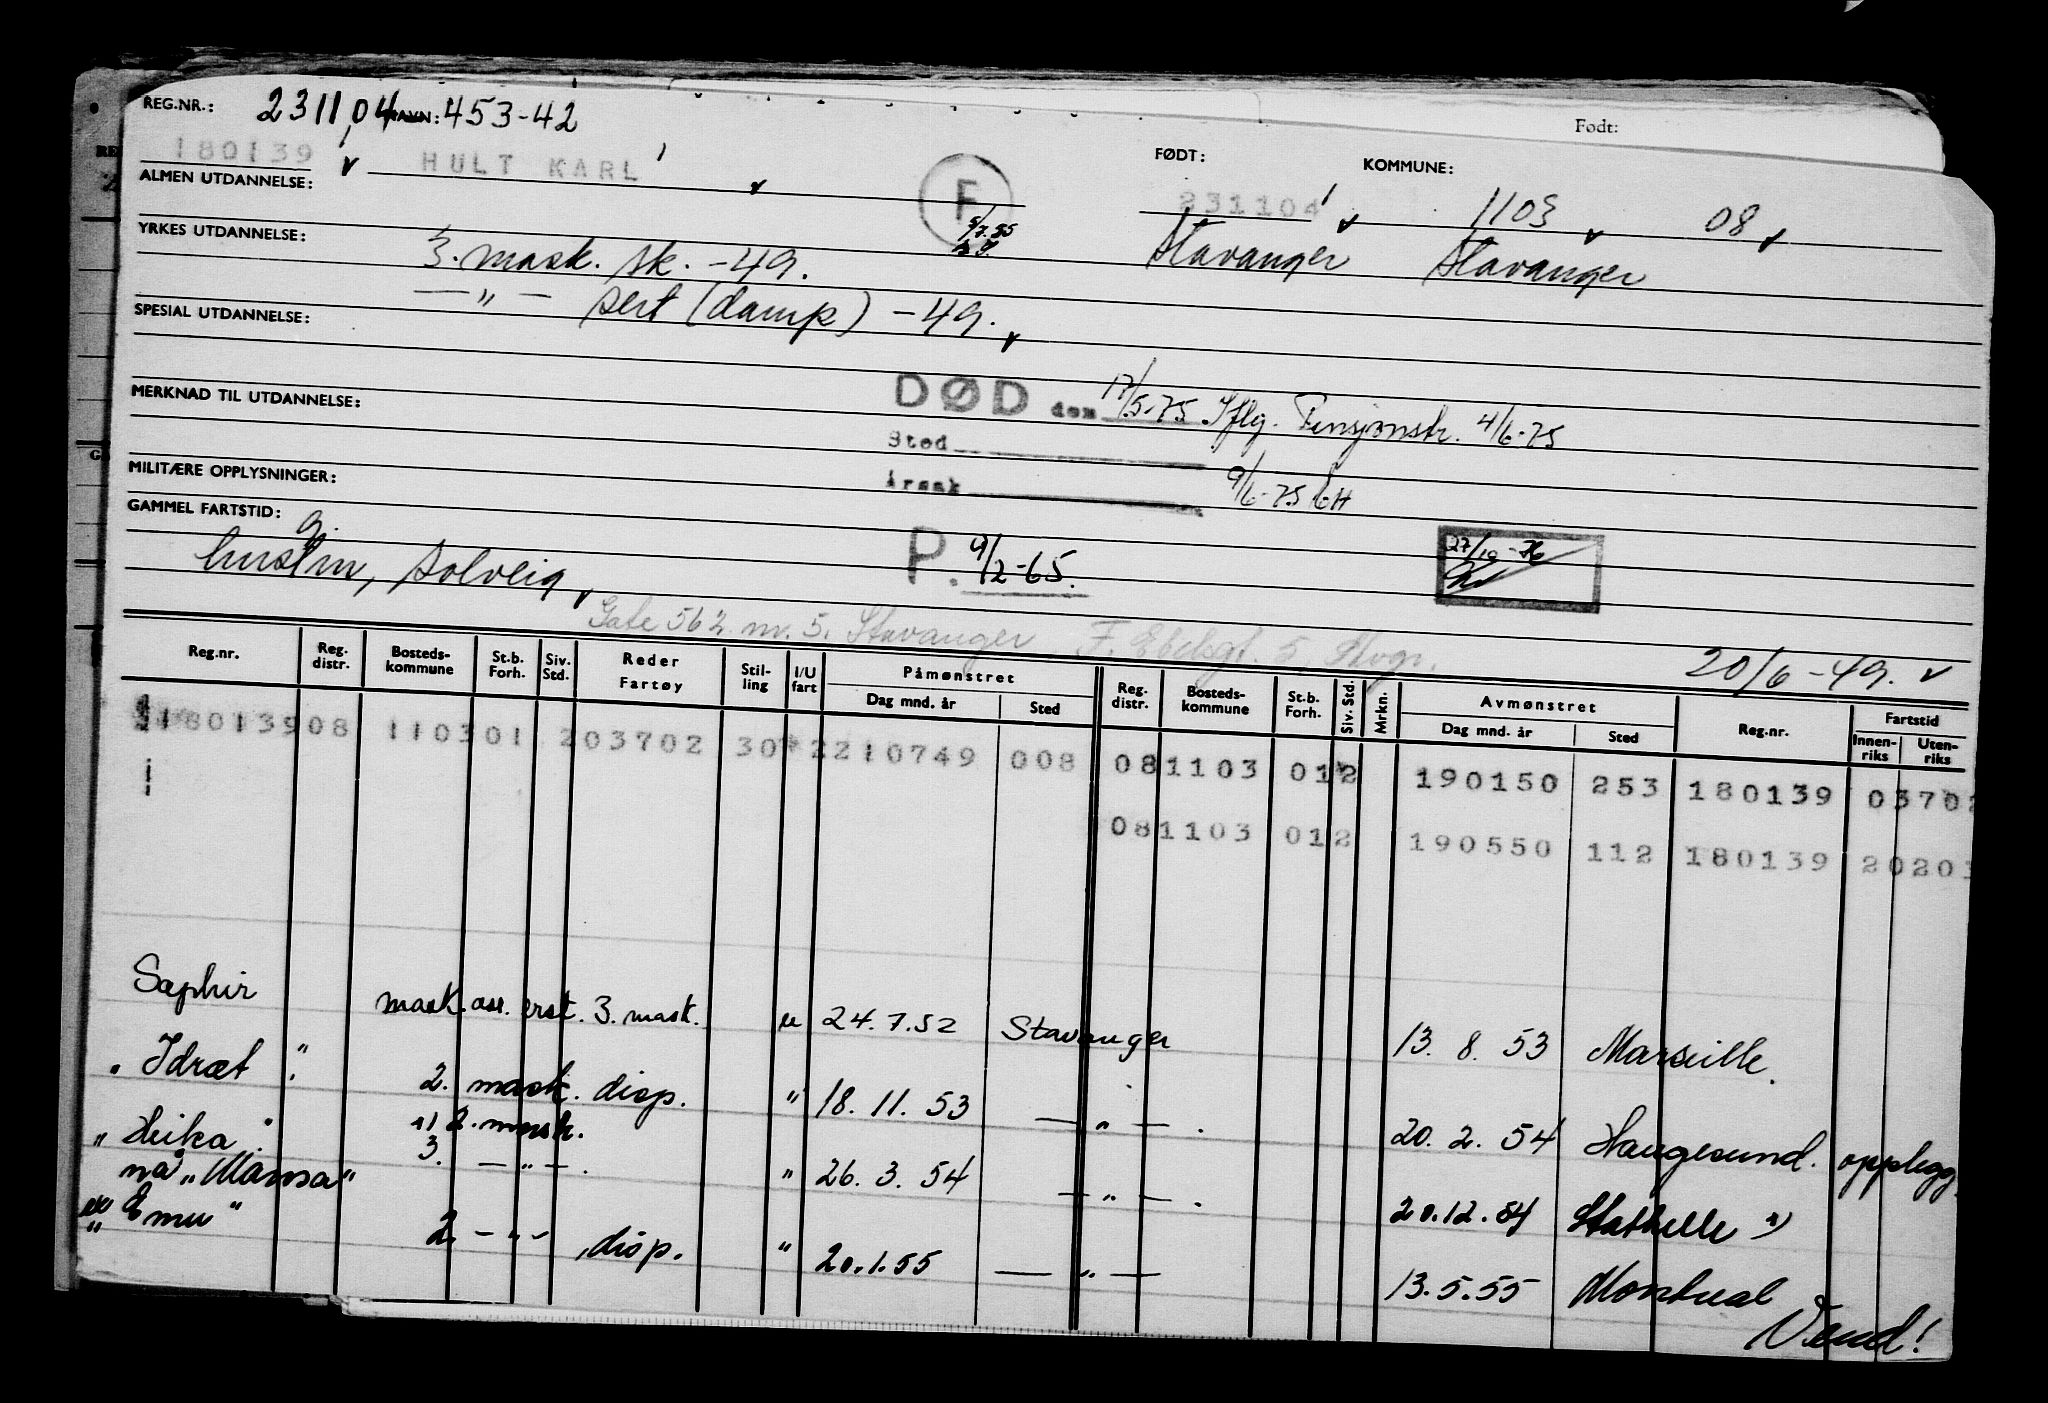 REG.NR.: 231104 NAVN: 453-42
Født:
180139 HULT KARL F FØDT: KOMMUNE:
ALMEN UTDANNELSE: 231104 1103 08
5/7.55
YRKES UTDANNELSE: 3. mask. sk. -49. Stavanger Stavanger
— " — sert (damp) -49.
SPESIAL UTDANNELSE:
MERKNAD TIL UTDANNELSE: DØD den 17/5-75 Iflg. Pensjonstr. 4/6-75
Sted
MILITÆRE OPPLYSNINGER: Årsak 9/6-75 GH
GAMMEL FARTSTID:
g. P. 9/2-65. 27/10-76
hustru, Solveig
Gate 562 nr. 5. Stavanger
20/6-49.
Reg.nr. Reg. distr. Bosteds- kommune St.b. Forh. Siv. Std. Reder Fartøy Stil- ling I/U fart Påmønstret Dag mnd. år Sted Reg. distr. Bosteds- kommune St.b. Forh. Siv. Std. Mrkn. Avmønstret Dag mnd. år Sted Reg.nr. Fartstid Innen- riks Uten- riks
18013908 110301 203702 30 2210749 008 081103 012 190150 253 180139 03702
081103 012 190550 112 180139 20203
Saphir mask. ass. erst. 3. mask. u 24.7.52 Stavanger 13. 8. 53 Marseille.
" Idræt " 2. mask. disp. " 18. 11. 53 — " — . 20. 2. 54 Haugesund. opplegg.
" Heika " x) 2. mask.
nå "Mamsa" 3. — " — . " 26. 3. 54 — " — . 20.12.54 Stathelle x)
ex " Emu " 2. — " — disp. " 20.1.55 — " — 13.5.55 Montreal
Vend!